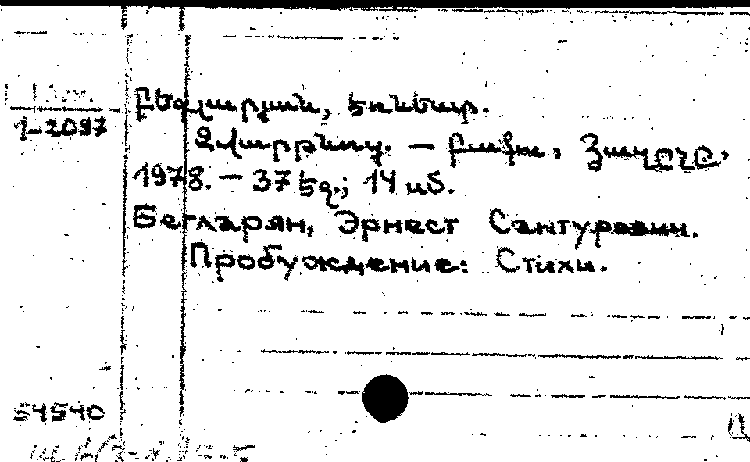 1-2097
Բեգլարյան, Էռնեստ.
Զվարթնոց. — Բաքու, Յազըչը,
1978. — 37 էջ.; 14 սմ.
Бегларян, Эрнест Сантурович.
Пробуждение: Стихи.
54540